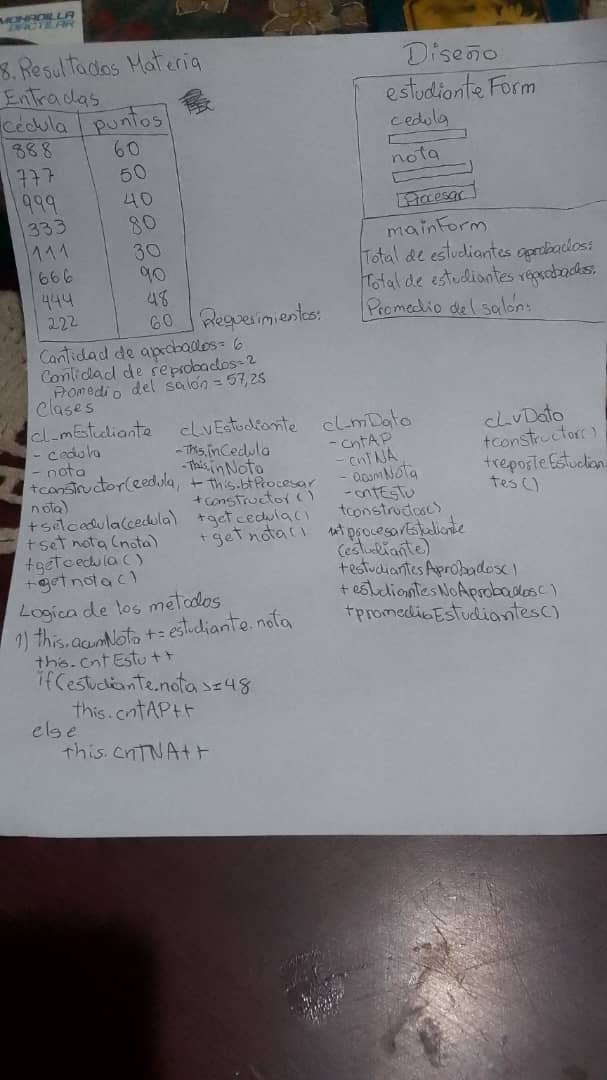 MOHADILLA
DACTILAR
8. Resultados Materia
Entradas
cédula puntos
888 60
777 50
999 40
333 80
111 30
666 90
444 48
222 60
Requerimientos:
Cantidad de aprobados= 6
Cantidad de reprobados=2
Promedio del salón = 57,25
Diseño
estudianteForm
cedula
nota
Procesar
mainForm
Total de estudiantes aprobados:
Total de estudiantes reprobados:
Promedio del salón:
Clases
cl_mEstudiante
- cedula
- nota
+constructor(cedula,
nota)
+setcedula(cedula)
+set nota(nota)
+getcedula()
+getnota()
cl_vEstudiante
-This.inCedula
-This.inNota
+ This.btProcesar
+constructor()
+getcedula()
+getnota()
cl_mDato
-cntAP
-cntNA
-acumNota
-cntEstu
+constructor()
+procesarEstudiante
(estudiante)
+estudiantesAprobados()
+estudiantesNoAprobados()
+promedioEstudiantes()
cl_vDato
+constructor()
+reporteEstudian
tes()
Logica de los metodos
1) this.acumNota += estudiante.nota
this.cntEstu++
if(estudiante.nota >=48
this.cntAP++
else
this.cnTNA++